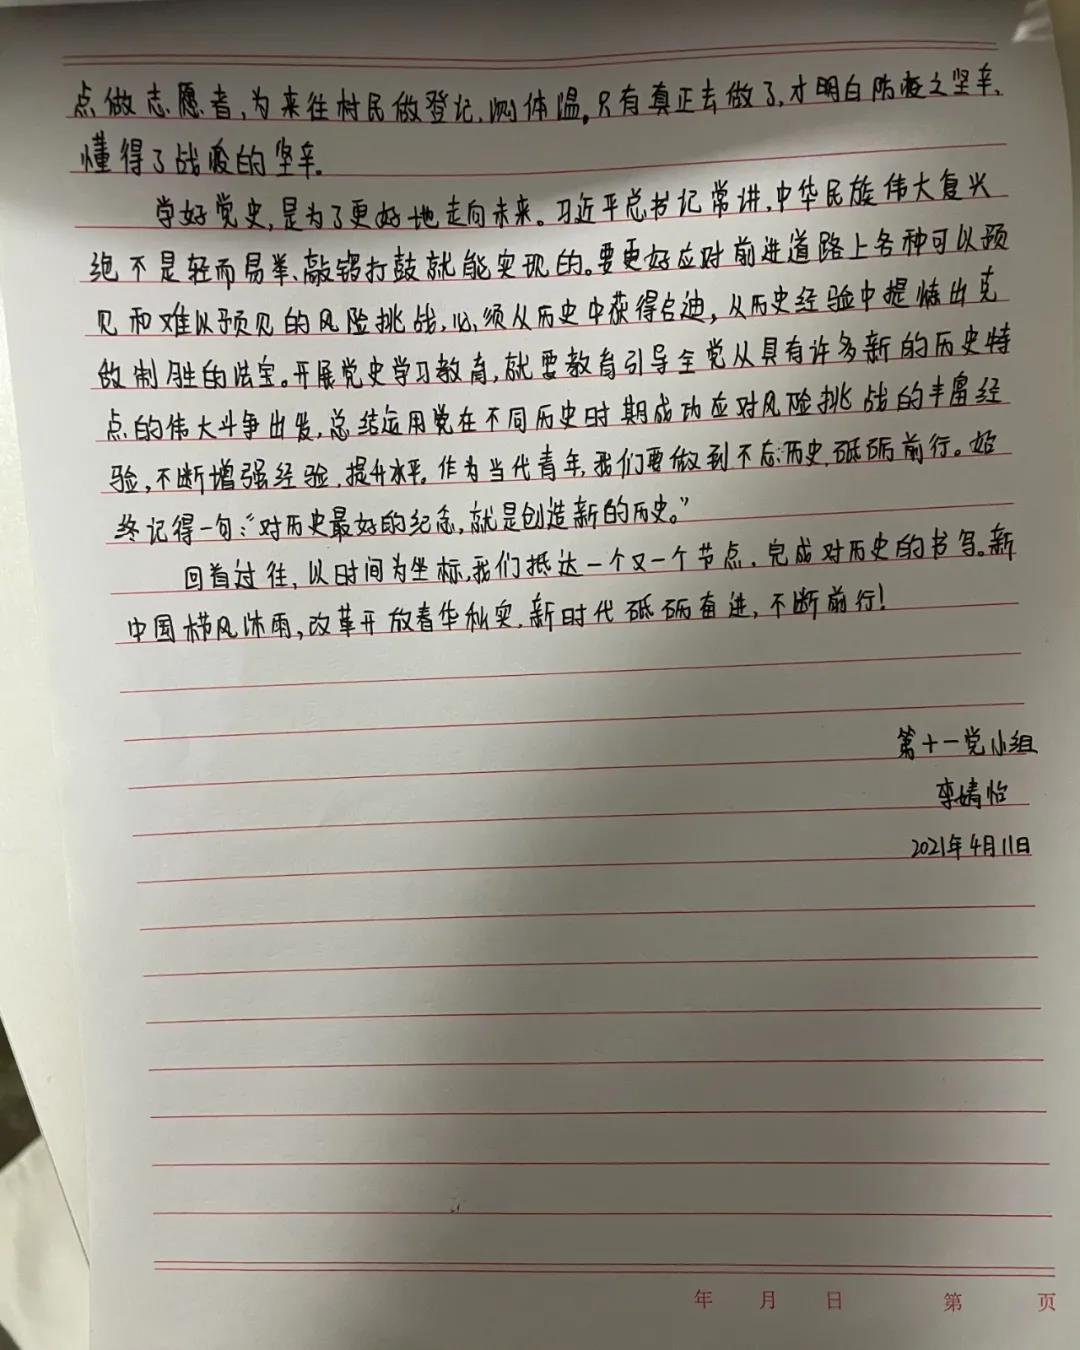 点做志愿者,为来往村民做登记、测体温。只有真正去做了,才明白防疫之坚辛、
懂得了战疫的坚辛。
学好党史,是为了更好地走向未来。习近平总书记常讲,中华民族伟大复兴
绝不是轻而易举、敲锣打鼓就能实现的。要更好应对前进道路上各种可以预
见和难以预见的风险挑战,必须从历史中获得启迪,从历史经验中提炼出克
敌制胜的法宝。开展党史学习教育,就要教育引导全党从具有许多新的历史特
点的伟大斗争出发,总结运用党在不同历史时期成功应对风险挑战的丰富经
验,不断增强经验,提升水平。作为当代青年,我们要做到不忘历史,砥砺前行。始
终记得一句:“对历史最好的纪念,就是创造新的历史。”
回首过往,以时间为坐标,我们抵达一个又一个节点,完成对历史的书写。新
中国栉风沐雨,改革开放春华秋实,新时代砥砺奋进,不断前行!
第十一党小组
李婧怡
2021年4月11日
年 月 日 第 页